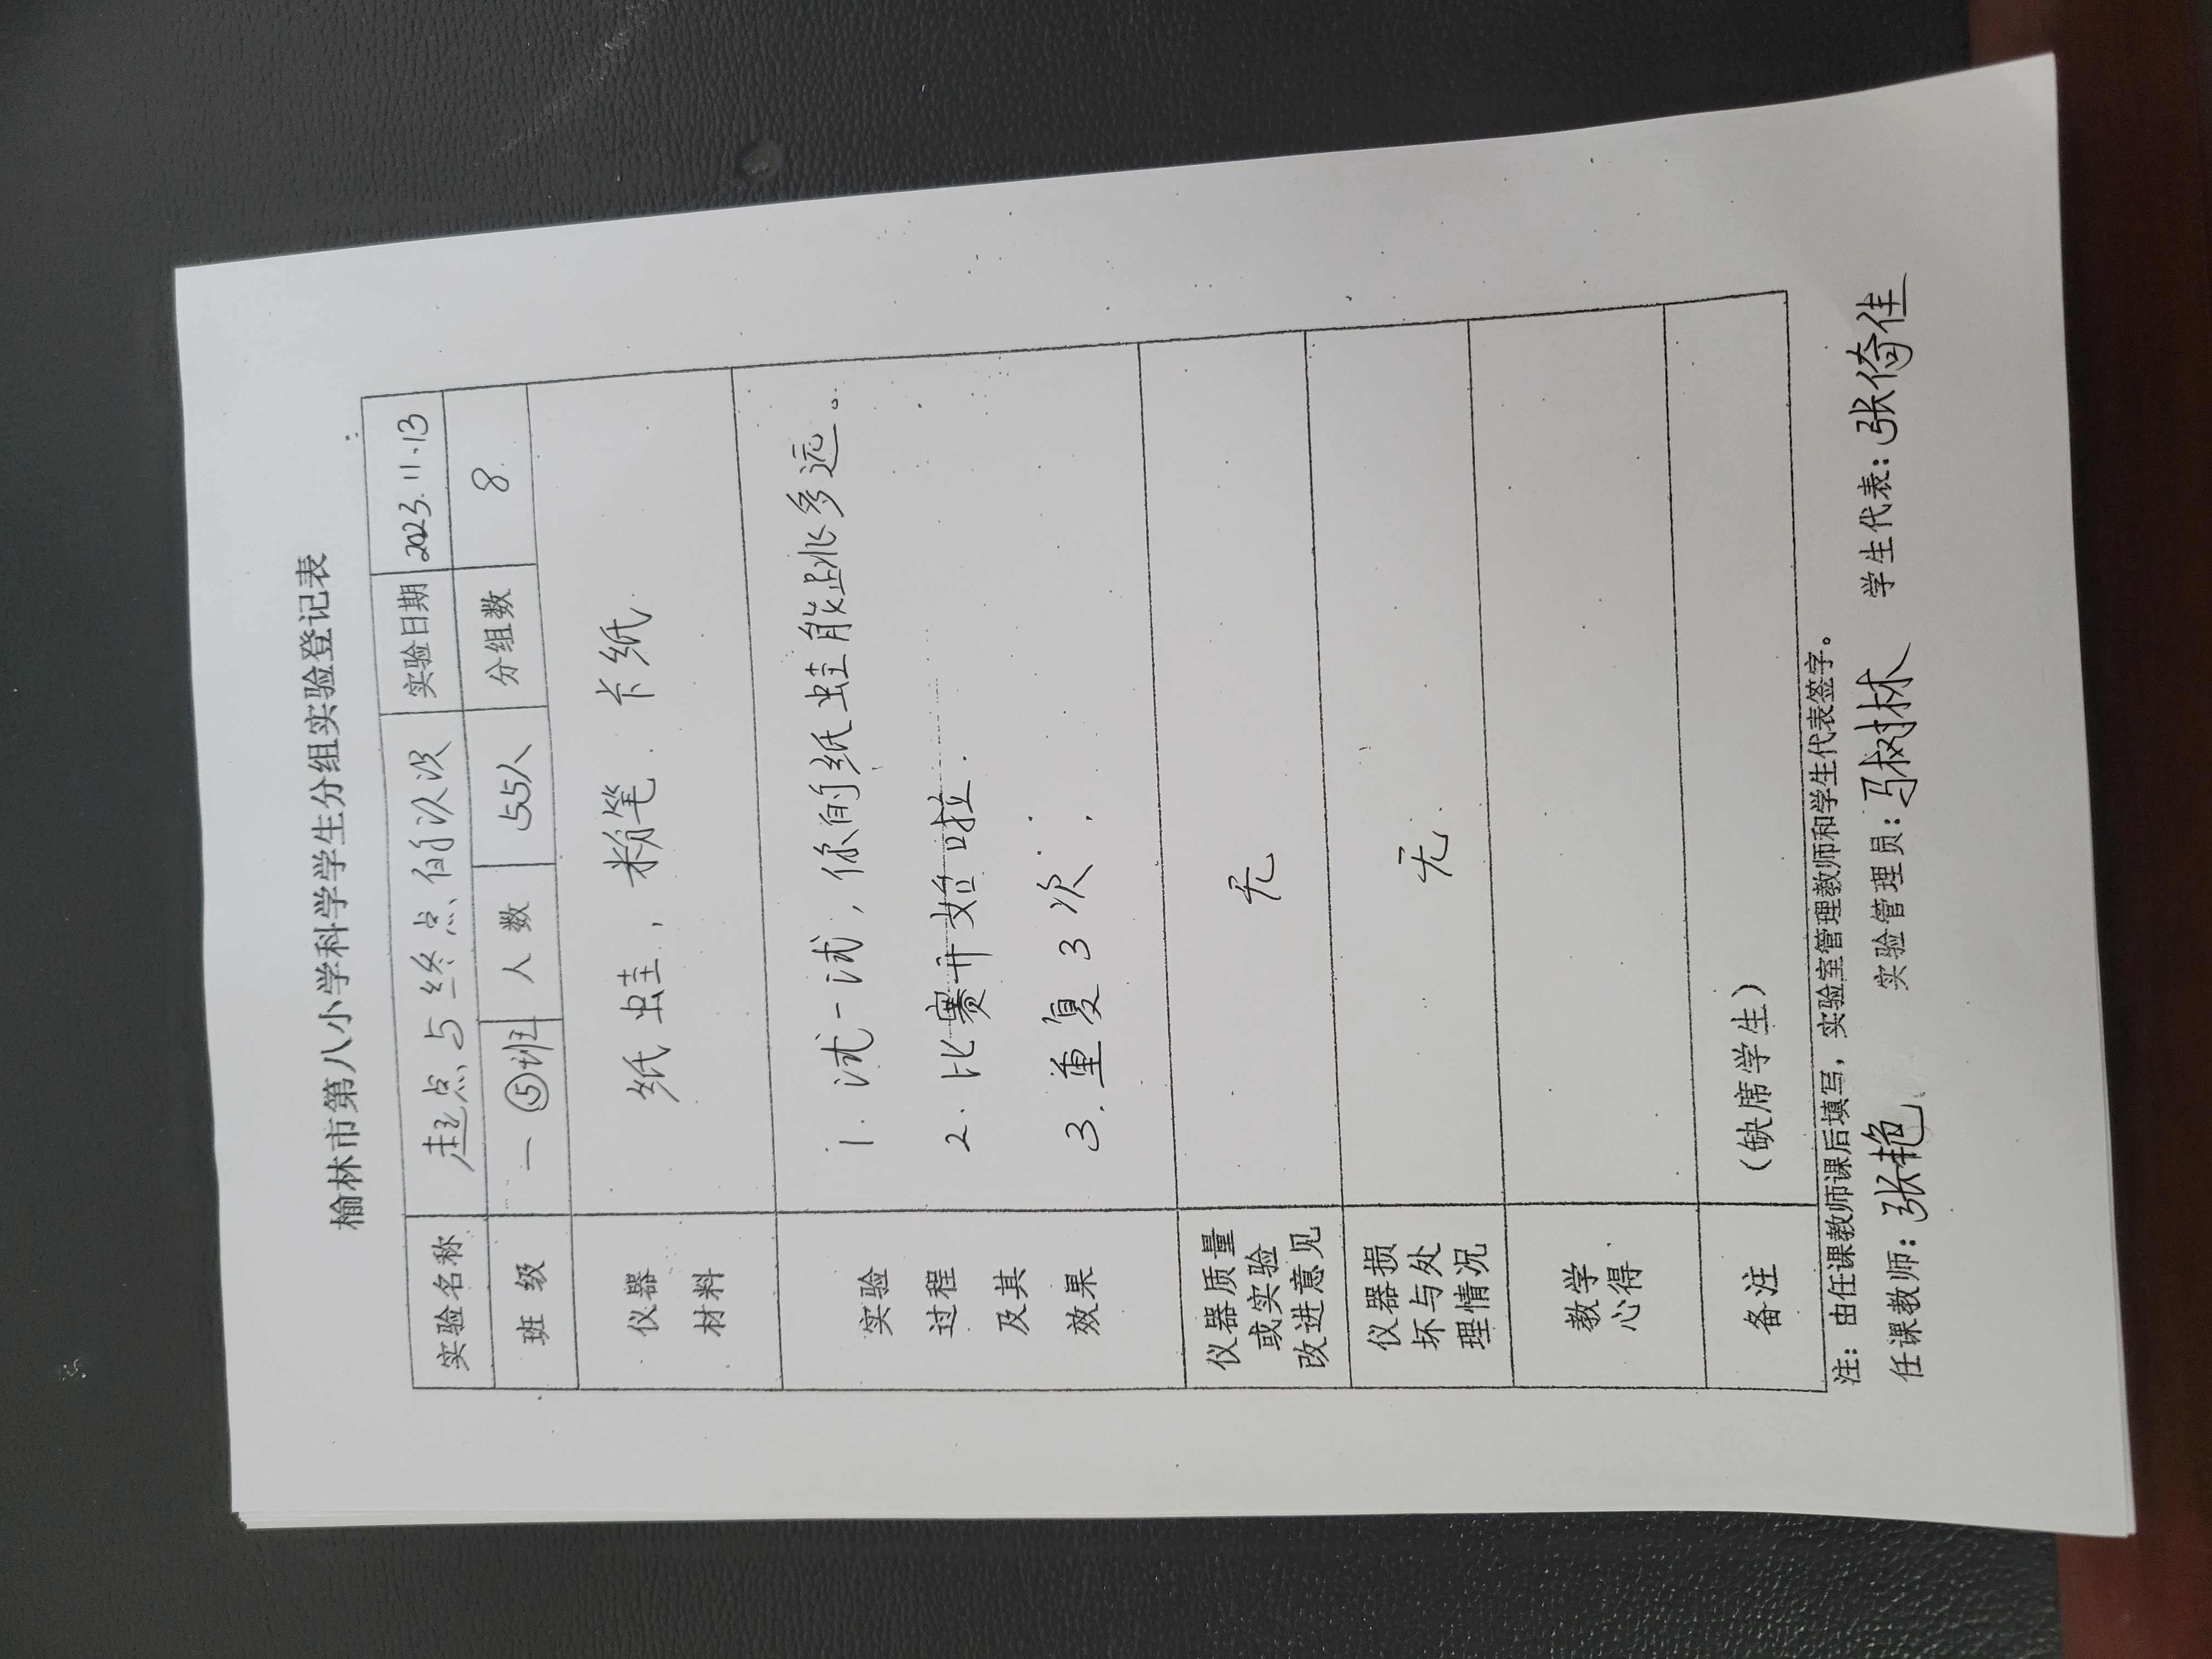 榆林市第八小学科学学生分组实验登记表
实验名称 起点与终点 实验日期 2023.11.13
班 级 一⑤班 人 数 55人 分组数 8
仪器
材料
纸蛙，粉笔.卡纸.
实验
过程
及其
效果
1.试一试，你的纸蛙能跳多远。
2.比赛开始啦.
3.重复3次.
仪器质量
或实验
改进意见
无
仪器损
坏与处
理情况
无.
教学
心得
备注 （缺席学生）
注：由任课教师课后填写，实验室管理教师和学生代表签字。
任课教师：张艳 实验管理员：马树林 学生代表：张倚佳